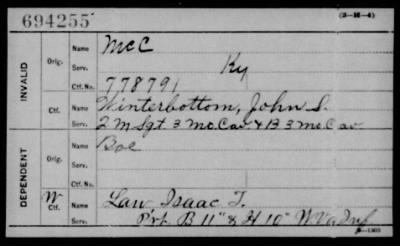 694255
(3-16-4)
INVALID
Orig.
Name McC
Serv. Ky
Ctf. No. 778791
Ctf.
Name Winterbottom, John S.
Serv. 2 M Sgt. 3 Mo Cav & B 3 Mo Cav
DEPENDENT
Orig.
Name Boe
Serv.
Ctf. No.
W Ctf.
Name Law Isaac T.
Serv. Pvt. B 11" & H 10" W Va Inf
6—1303